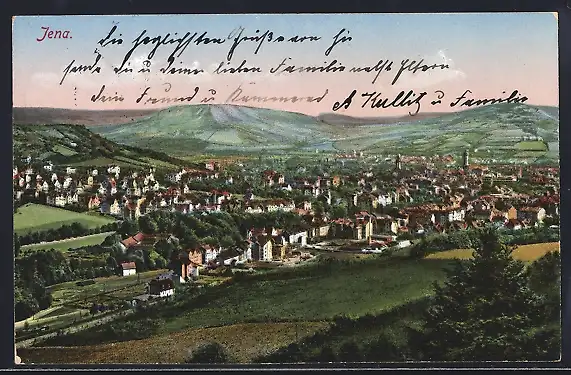 Jena.
Die herzlichsten Grüße von hie
sende dir u deiner lieben Familie nebst Eltern
dein Freund u Kammerad A Kullitz u Familie